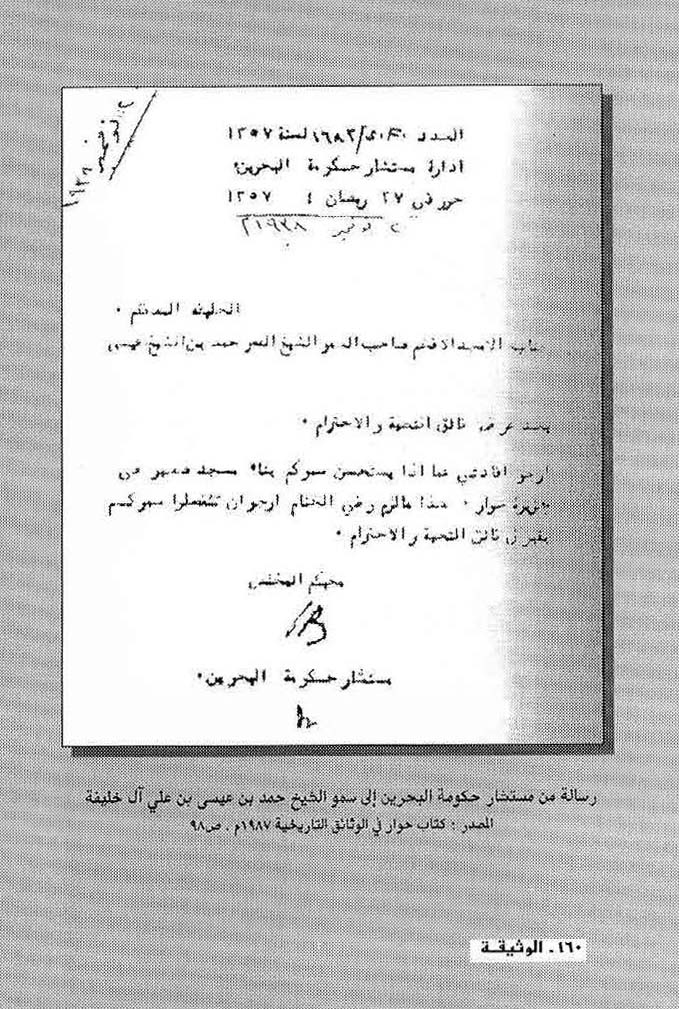 ٢ نوفمبر ١٩٣٨
العدد /١٦٨٢ لسنة ١٣٥٧
ادارة مستشار حكومة البحرين
حرر في ٢٧ رمضان ١٣٥٧
٢ نوفمبر ١٩٣٨
الخليفه المعظم .
جناب الامجد الافخم صاحب السمو الشيخ السر حمد بن الشيخ عيسى
بعد عرض فائق التحية والاحترام .
ارجو افادتي عما اذا يستحسن سموكم بناء مسجد صغير في
جزيرة حوار . هذا مالزم وفي الختام ارجوان تتفضلوا سموكم
بقبول فائق التحية والاحترام .
محبكم المخلص
مستشار حكومة البحرين.
رسالة من مستشار حكومة البحرين إلى سمو الشيخ حمد بن عيسى بن علي آل خليفة
المصدر : كتاب حوار في الوثائق التاريخية ١٩٨٧م ، ص٩٨
١٦٠ - الوثيقة